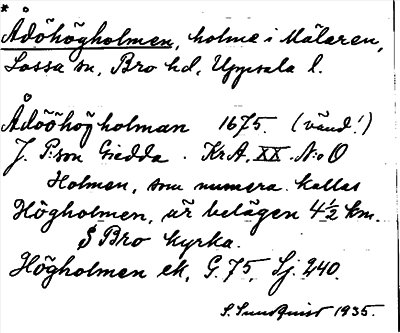 * Ådöhögholmen, holme i Mälaren,
Lossa sn, Bro hd, Uppsala l.
Ådööhögholman 1675. (vänd!)
J. P:son Giedda. KrA, XX. N:o 0
Holmen, som numera kallas
Högholmen, är belägen 4½ km.
S Bro kyrka.
Högholmen ek, G. 75, Sj. 240.
S. Sundquist 1935.